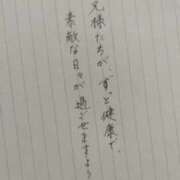 兄様たちが、ずっと健康で、
素敵な日々が過ごせますよう